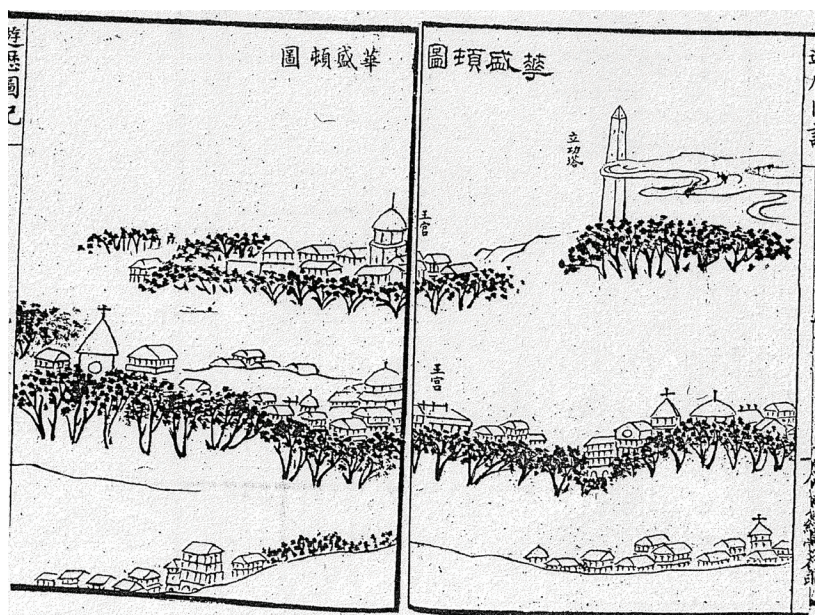 華盛頓圖
立功塔
王宮
王宮
華盛頓圖
遊歷圖記